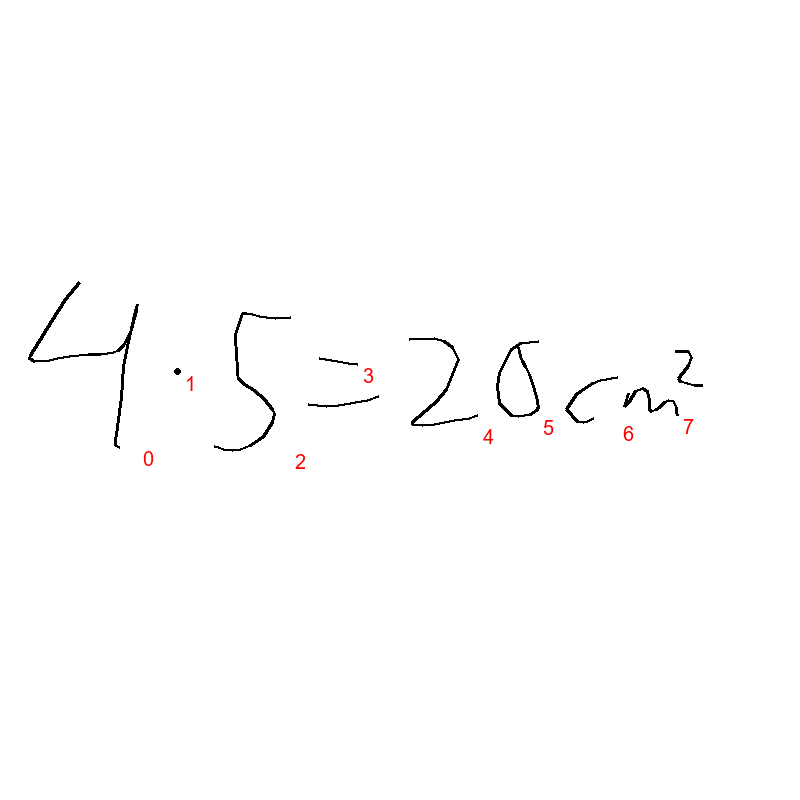 4 · 5 = 20 cm²
0 1 2 3 4 5 6 7